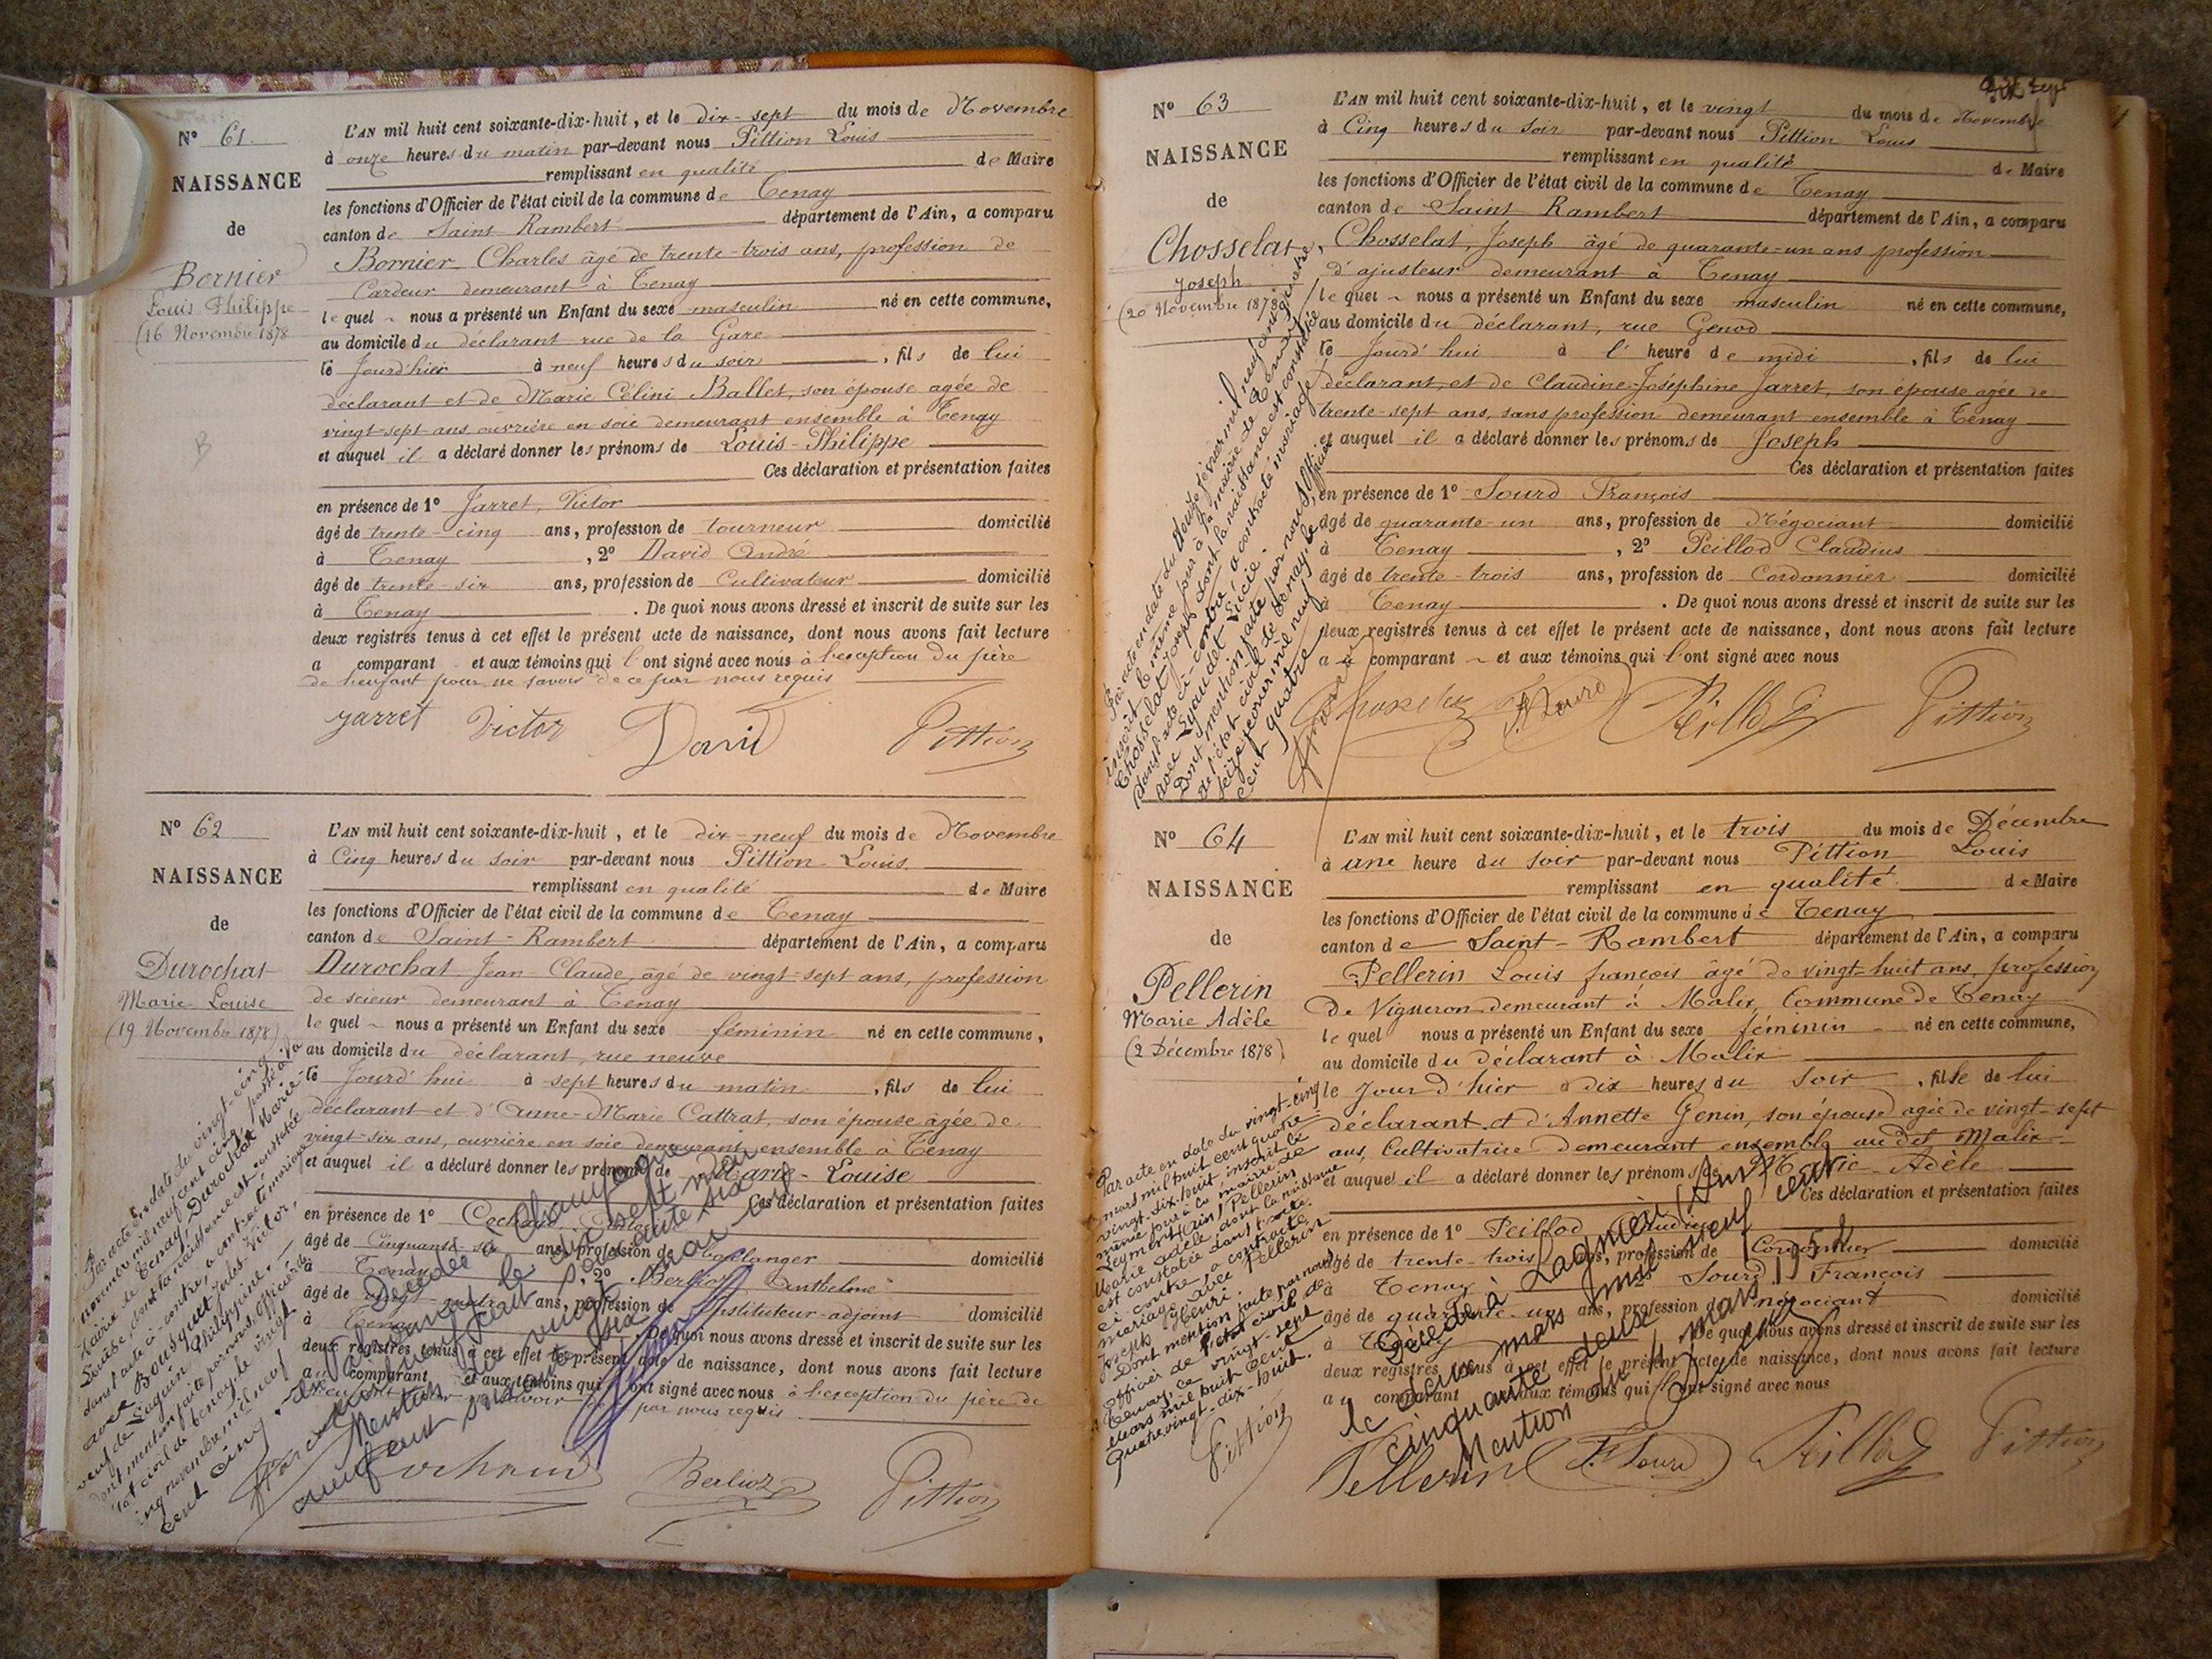 N° 61
NAISSANCE
de
Bornier
Louis Philippe
(16 Novembre 1878
B
L'AN mil huit cent soixante-dix-huit, et le dix-sept du mois de Novembre
à onze heures du matin par-devant nous Pittion Louis
remplissant en qualité de Maire
les fonctions d'Officier de l'état civil de la commune de Tenay
canton de Saint Rambert département de l'Ain, a comparu
Bornier Charles âgé de trente-trois ans, profession de
Cardeur demeurant à Tenay
le quel nous a présenté un Enfant du sexe masculin né en cette commune,
au domicile du déclarant rue de la Gare
le Jourd'hier à neuf heures du soir, fils de lui
déclarant et de Marie Célini Ballet, son épouse agée de
vingt-sept ans ouvrière en soie demeurant ensemble à Tenay
et auquel il a déclaré donner les prénoms de Louis-Philippe
Ces déclaration et présentation faites
en présence de 1° Jarret, Victor
âgé de trente-cinq ans, profession de tourneur domicilié
à Tenay, 2° David André
âgé de trente-six ans, profession de Cultivateur domicilié
à Tenay. De quoi nous avons dressé et inscrit de suite sur les
deux registres tenus à cet effet le présent acte de naissance, dont nous avons fait lecture
a comparant et aux témoins qui l'ont signé avec nous à l'exception du père
de l'enfant pour ne savoir de ce par nous requis
Jarret Victor David Pittion
N° 62
NAISSANCE
de
Durochat
Marie Louise
(19 Novembre 1878)
L'AN mil huit cent soixante-dix-huit, et le dix-neuf du mois de Novembre
à Cinq heures du soir par-devant nous Pittion Louis
remplissant en qualité de Maire
les fonctions d'Officier de l'état civil de la commune de Tenay
canton de Saint-Rambert département de l'Ain, a comparu
Durochat Jean-Claude, âgé de vingt-sept ans, profession
de scieur demeurant à Tenay
le quel nous a présenté un Enfant du sexe féminin né en cette commune,
au domicile du déclarant, rue neuve
le Jourd'hui à sept heures du matin, fils de lui
déclarant et d'Anne-Marie Cattrat, son épouse âgée de
vingt-six ans, ouvrière en soie demeurant ensemble à Tenay
et auquel il a déclaré donner les prénoms de Marie-Louise
Ces déclaration et présentation faites
en présence de 1°
âgé de Cinquante-six ans, profession de Boulanger domicilié
à Tenay, 2° Berlioz Anthelme
âgé de ans, profession de Instituteur-adjoint domicilié
à Tenay. De quoi nous avons dressé et inscrit de suite sur les
deux registres tenus à cet effet le présent acte de naissance, dont nous avons fait lecture
au comparant et aux témoins qui l'ont signé avec nous à l'exception du père de
par nous requis
Berlioz Pittion
Par acte en date du vingt-cinq
novembre mil neuf cent cinq, passé à la
Mairie de Tenay, Durochat Marie-
Louise, dont la naissance est constatée
dans l'acte ci-contre, a contracté mariage
avec Bousquet Jules Victor,
veuf de Luquin Philippine.
Dont mention faite par nous, officier de
l'état civil de Tenay, le vingt
cinq novembre mil neuf
cent cinq
Décédée à Champagne
en Valromey le dix sept mai
mil neuf cent soixante six
Mention du vingt mai mil
neuf cent soixante six
N° 63
NAISSANCE
de
Chosselat
Joseph
(20 Novembre 1878)
L'AN mil huit cent soixante-dix-huit, et le vingt du mois de Novembre
à Cinq heures du soir par-devant nous Pittion Louis
remplissant en qualité de Maire
les fonctions d'Officier de l'état civil de la commune de Tenay
canton de Saint Rambert département de l'Ain, a comparu
Chosselat, Joseph âgé de quarante-un ans profession
d'ajusteur demeurant à Tenay
le quel nous a présenté un Enfant du sexe masculin né en cette commune,
au domicile du déclarant, rue Genod
le Jourd'hui à l'heure de midi, fils de lui
déclarant, et de Claudine-Joséphine Jarret, son épouse agée de
trente-sept ans, sans profession demeurant ensemble à Tenay
et auquel il a déclaré donner les prénoms de Joseph
Ces déclaration et présentation faites
en présence de 1° Sourd François
âgé de quarante-un ans, profession de Négociant domicilié
à Tenay, 2° Peillod Claudius
âgé de trente-trois ans, profession de Cordonnier domicilié
à Tenay. De quoi nous avons dressé et inscrit de suite sur les
deux registres tenus à cet effet le présent acte de naissance, dont nous avons fait lecture
au comparant et aux témoins qui l'ont signé avec nous
Chosselat F. Sourd Peillod Pittion
Par acte en date du douze février mil neuf cent quatre,
inscrit le même jour à la mairie de Tenay,
Chosselat Joseph dont la naissance est constatée
dans l'acte ci-contre a contracté mariage
avec Lucie.
Dont mention faite par nous, Officier
de l'état civil de Tenay, le
seize février mil neuf
cent quatre
N° 64
NAISSANCE
de
Pellerin
Marie Adèle
(2 Décembre 1878)
L'AN mil huit cent soixante-dix-huit, et le trois du mois de Décembre
à une heure du soir par-devant nous Pittion Louis
remplissant en qualité de Maire
les fonctions d'Officier de l'état civil de la commune de Tenay
canton de Saint-Rambert département de l'Ain, a comparu
Pellerin Louis françois âgé de vingt-huit ans, profession
de Vigneron demeurant à Malix, Commune de Tenay
le quel nous a présenté un Enfant du sexe féminin né en cette commune,
au domicile du déclarant à Malix
le Jour d'hier à dix heures du soir, fille de lui
déclarant et d'Annette Genin, son épouse agée de vingt-sept
ans, Cultivatrice demeurant ensemble au dit Malix
et auquel il a déclaré donner les prénoms de Marie-Adèle
Ces déclaration et présentation faites
en présence de 1° Peillod Claudius
âgé de trente-trois ans, profession de Cordonnier domicilié
à Tenay, 2° Sourd François
âgé de quarante-un ans, profession de négociant domicilié
à Tenay. De quoi nous avons dressé et inscrit de suite sur les
deux registres tenus à cet effet le présent acte de naissance, dont nous avons fait lecture
au comparant et aux témoins qui l'ont signé avec nous
Pellerin F. Sourd Peillod Pittion
Par acte en date du vingt-cinq
mars mil huit cent quatre-
vingt-dix-huit inscrit le
même jour à la mairie de
Leyment (Ain) Pellerin
Marie Adèle dont la naissance
est constatée dans l'acte
ci-contre, a contracté
mariage avec Pellerin
Joseph Henri.
Dont mention faite par nous
officier de l'état civil de
Tenay, le vingt-sept
mars mil huit cent
quatre-vingt-dix-huit.
Pittion
Décédée à Lagnieu (Ain)
le deux mars mil neuf cent
cinquante deux
Mention du 4 mars 1952